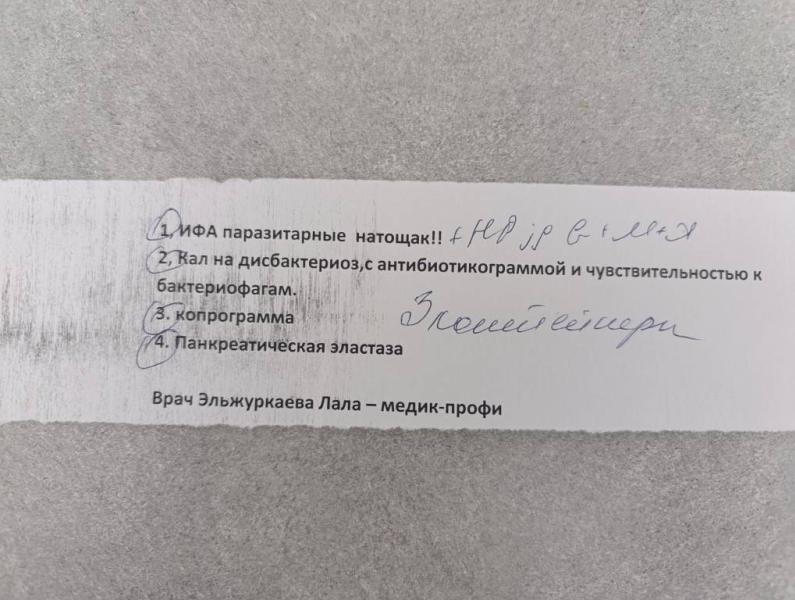 1, ИФА паразитарные натощак!! + HP jp G + M + A
2, Кал на дисбактериоз,с антибиотикограммой и чувствительностью к
бактериофагам.
3. копрограмма 3 контейнера
4. Панкреатическая эластаза
Врач Эльжуркаева Лала – медик-профи